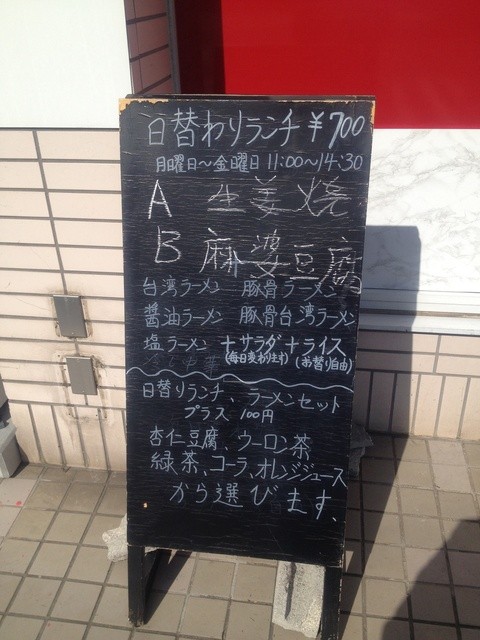 日替わりランチ ¥700
月曜日～金曜日 11:00～14:30
A 生姜焼
B 麻婆豆腐
台湾ラーメン 豚骨ラーメン
醤油ラーメン 豚骨台湾ラーメン
塩ラーメン +サラダ+ライス
(毎日変わります) (お替り自由)
日替りランチ、ラーメンセット
プラス 100円
杏仁豆腐、ウーロン茶
緑茶、コーラ、オレンジジュース
から選びます、